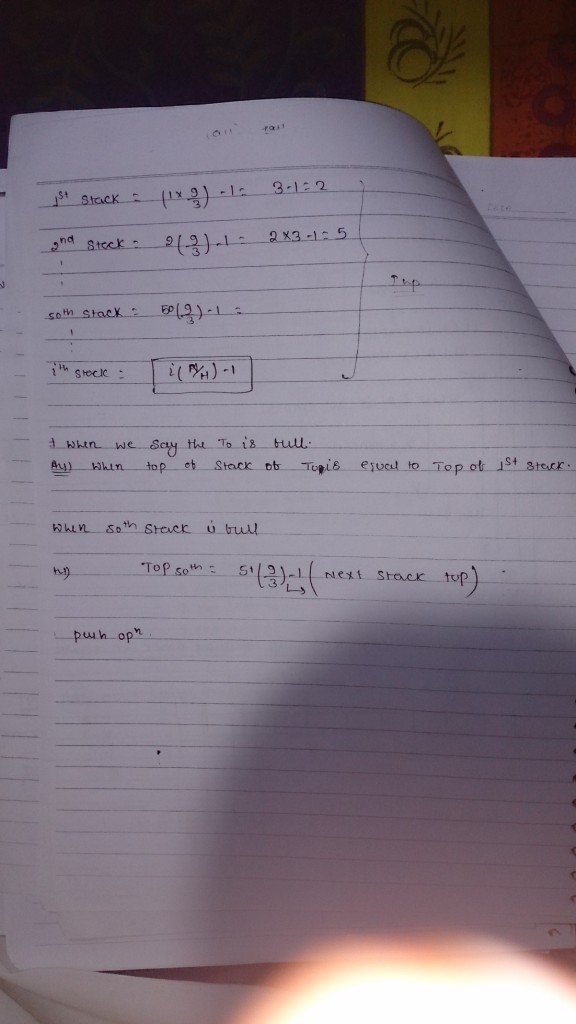 1st stack = (1 × 9/3) - 1 = 3-1 = 2
2nd stack = 2(9/3) - 1 = 2×3-1 = 5
50th stack = 50(9/3) - 1 =
Top
ith stack = i(N/M) - 1
+ When we say the To is full.
Ay) When top of stack of Top is equal to Top of 1st stack.
When 50th stack is full
Top 50th = 51(9/3) - 1 (Next stack top)
push opn